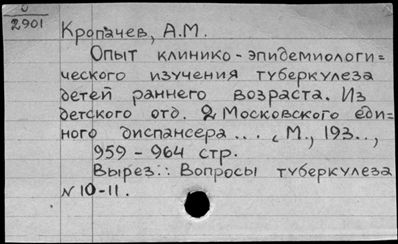 2901
Кропачев, А.М.
Опыт клинико-эпидемиологи=
ческого изучения туберкулеза
детей раннего возраста. Из
детского отд. 2 Московского еди=
ного диспансера ... М., 193..,
959 - 964 стр.
Вырез.: Вопросы туберкулеза
№ 10-11.